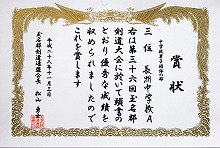 賞状
中学校男子団体の部
三位 長州中学校A
右は第三十六回玉名郡
剣道大会に於いて頭書の
とおり優秀な成績を
収められましたので
これを賞します
平成二十八年十一月三日
玉名郡剣道連盟会長 松山